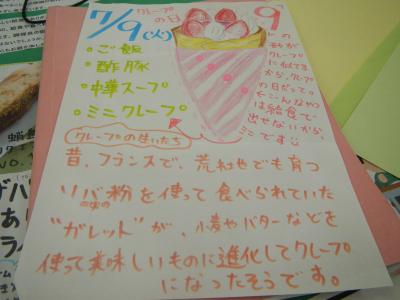 7/9(火)
クレープの日
・ご飯
・酢豚
・中華スープ
・ミニクレープ
9
の
形が
クレープ
に似てる
から、クレープ
の日だって。
こんなやつ
は給食で
出せないから
ミニです
クレープの生いたち
昔、フランスで、荒れ地でも育つ
ソバの実の粉を使って食べられていた
"ガレット"が、小麦やバターなどを
使って美味しいものに進化してクレープ
になったそうです。